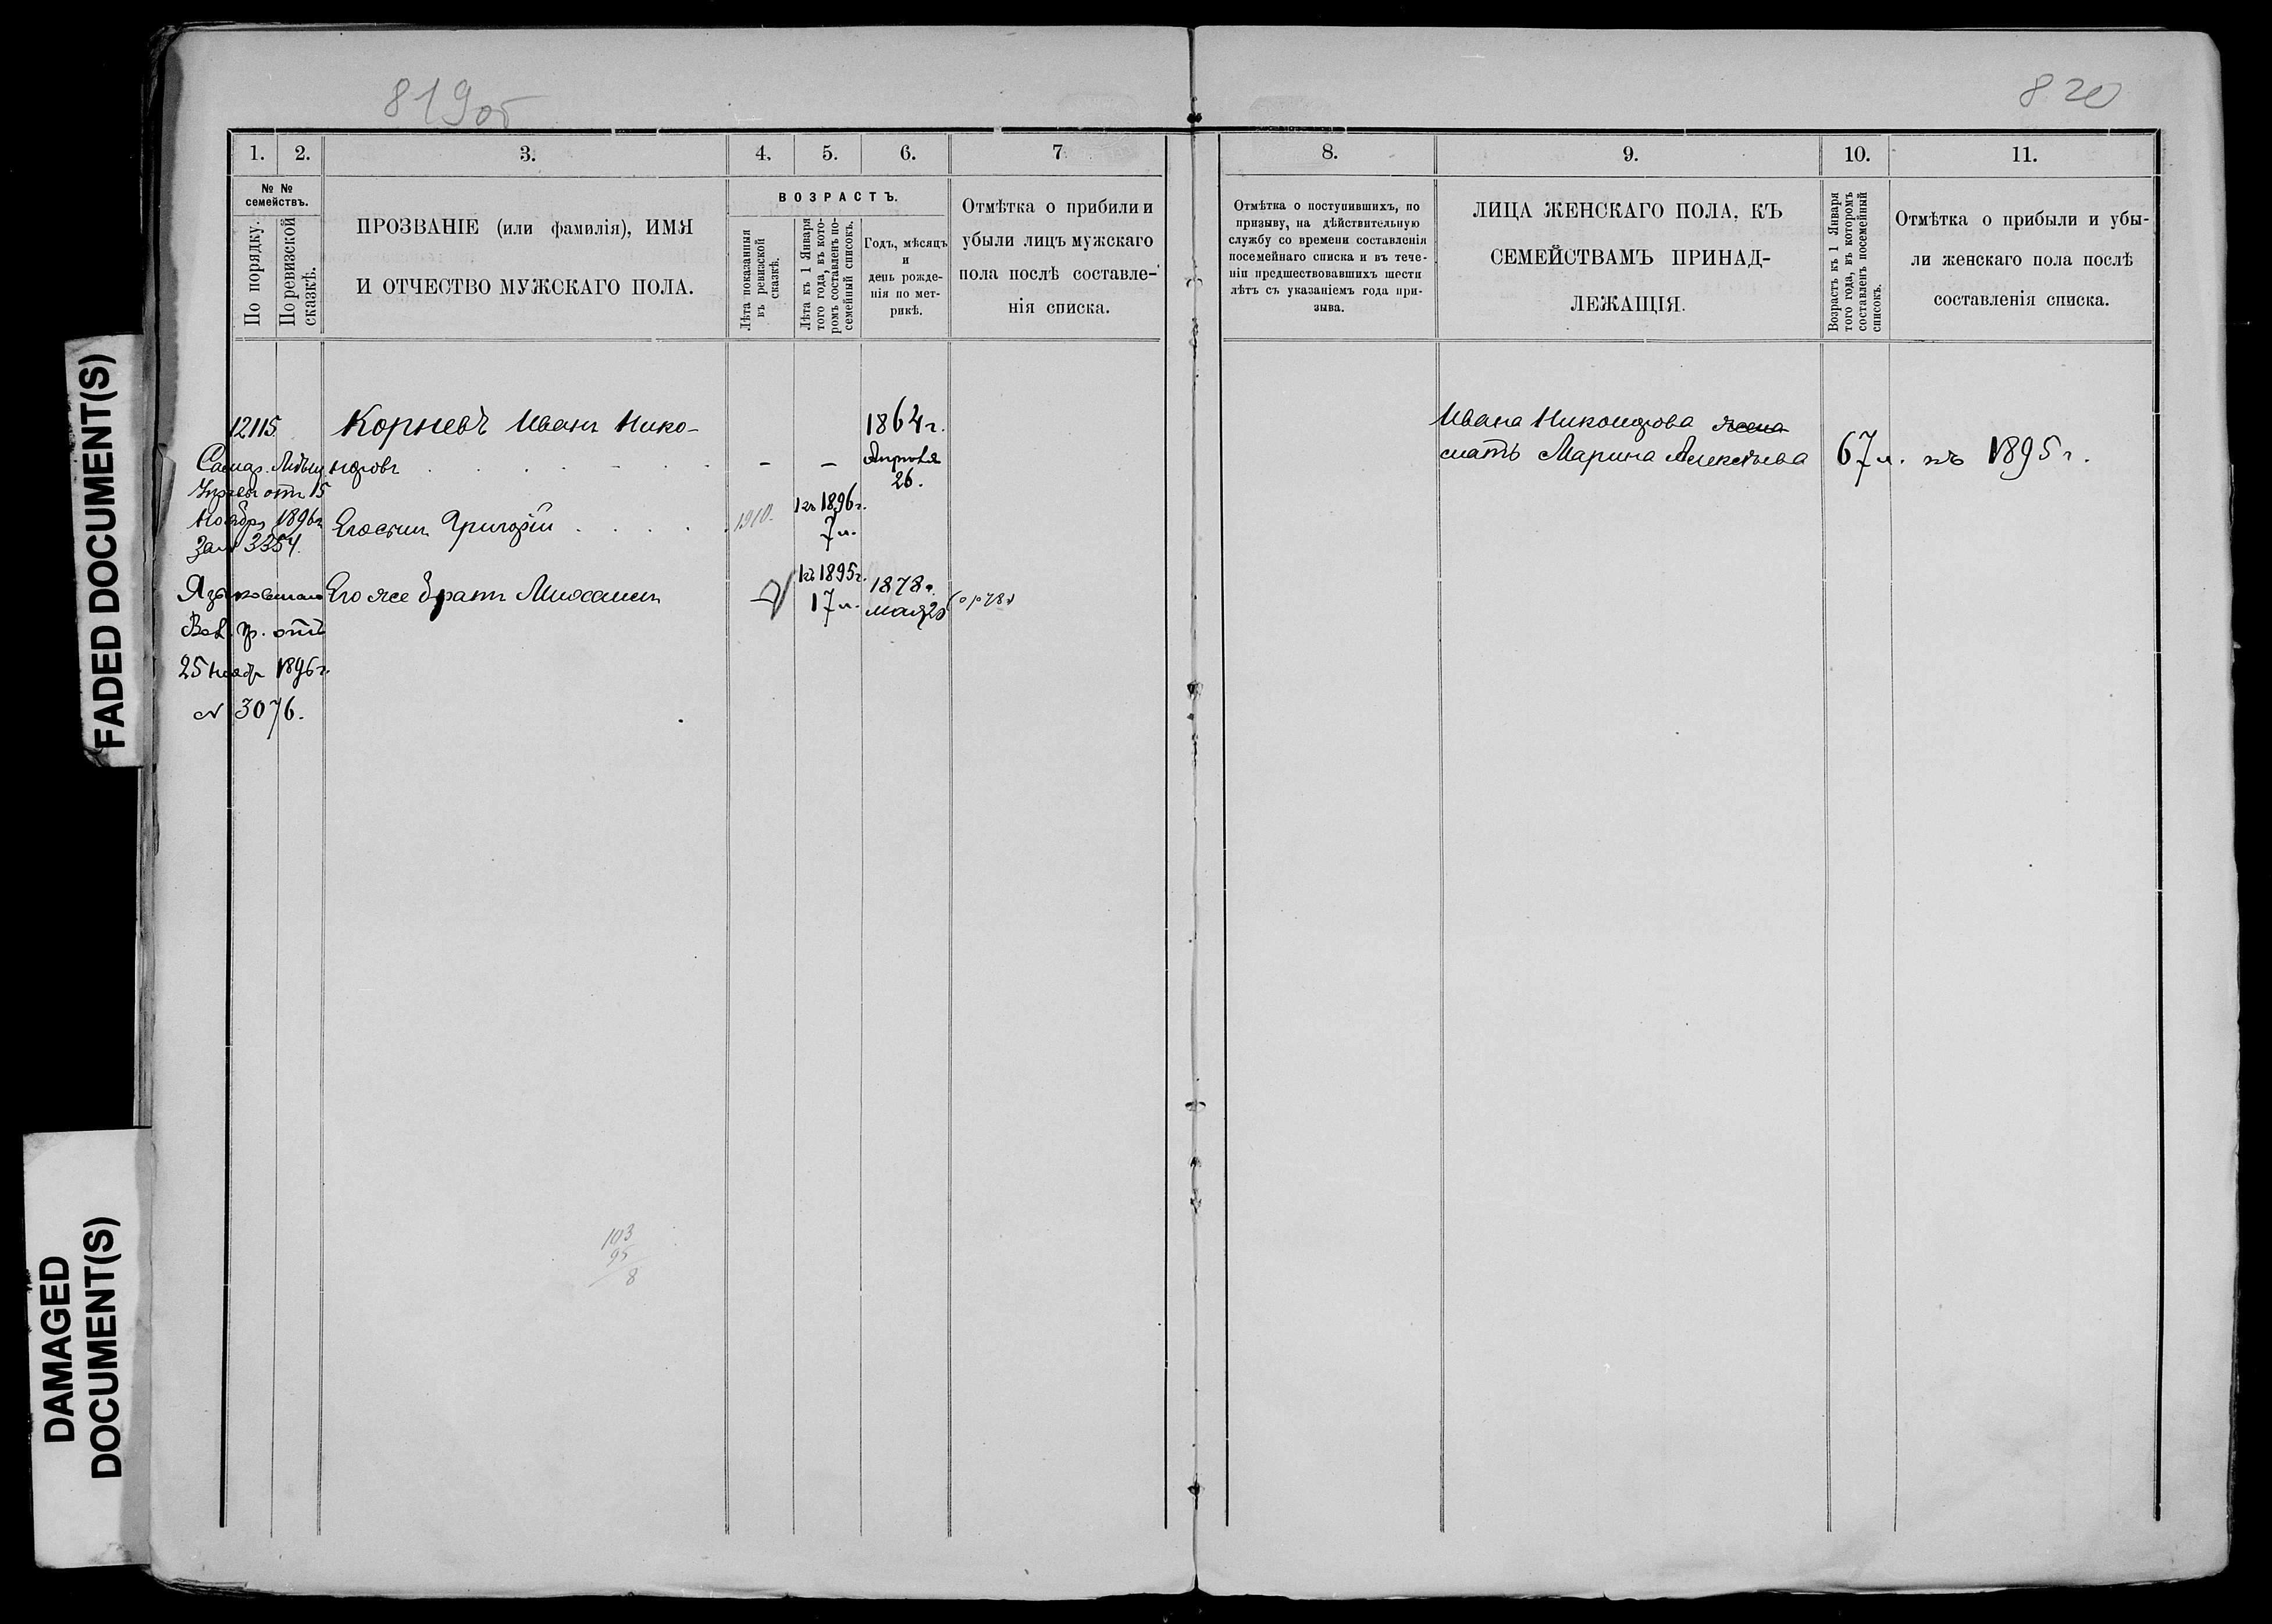 819об
820
1.
2.
3.
4.
5.
6.
7
8.
9.
10.
11.
№ №
семействъ.
По порядку.
По ревизской
сказкѣ.
ПРОЗВАНІЕ (или фамилія), ИМЯ
И ОТЧЕСТВО МУЖСКАГО ПОЛА.
ВОЗРАСТЪ.
Лѣта показанныя
въ ревизской
сказкѣ.
Лѣта къ 1 Января
того года, въ кото-
ромъ составленъ по-
семейный списокъ.
Годъ, мѣсяцъ
и
день рожде-
нія по мет-
рикѣ.
Отмѣтка о прибыли и
убыли лицъ мужскаго
пола послѣ составле-
нія списка.
Отмѣтка о поступившихъ, по
призыву, на дѣйствительную
службу со времени составленія
посемейнаго списка и въ тече-
ніи предшествовавшихъ шести
лѣтъ съ указаніемъ года при-
зыва.
ЛИЦА ЖЕНСКАГО ПОЛА, КЪ
СЕМЕЙСТВАМЪ ПРИНАД-
ЛЕЖАЩІЯ.
Возрастъ къ 1 Января
того года, въ которомъ
составленъ посемейный
списокъ.
Отмѣтка о прибыли и убы-
ли женскаго пола послѣ
составленія списка.
12115
Корневъ Иванъ Нико-
норовъ
1864 г.
Апрѣля
26.
Ивана Никонорова жена
мать Марина Алексѣева
67 л. къ 1895 г.
Самар.
Управы отъ 15
Ноября 1896 г.
за № 3354.
Его сынъ Григорій
1910.
къ 1896 г.
7 л.
Его же братъ Михаилъ
къ 1895 г.
17 л.
1878 г.
мая 20
отъ
25 Ноябр 1896 г.
№ 3076.
103
95
8
FADED DOCUMENT(S)
DAMAGED
DOCUMENT(S)